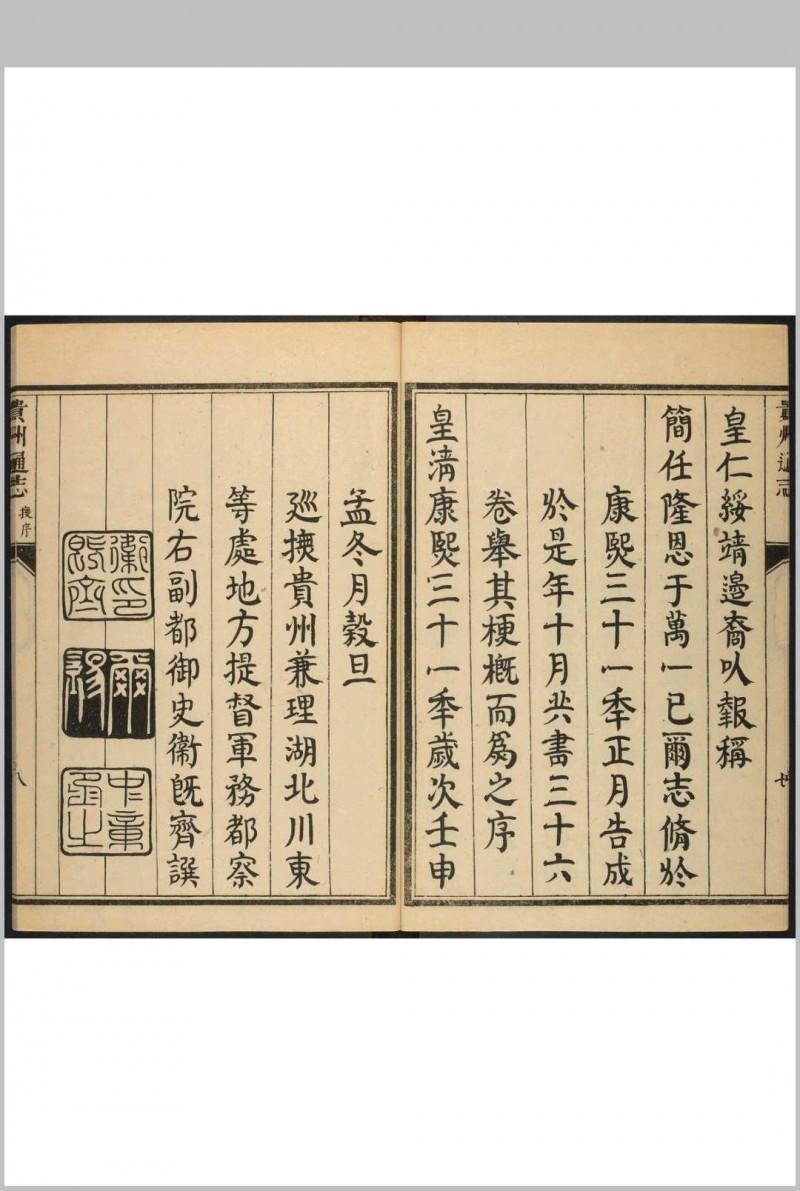 貴州通志
皇仁綏靖邊裔以報稱
簡任隆恩于萬一已爾志脩於
康熙三十一年正月告成
於是年十月共書三十六
卷舉其梗概而為之序
皇清康熙三十一年歲次壬申
孟冬月穀旦
廵撫貴州兼理湖北川東
等處地方提督軍務都察
院右副都御史衞既齊譔
衞印既齊
爾錫
貴州通志
八